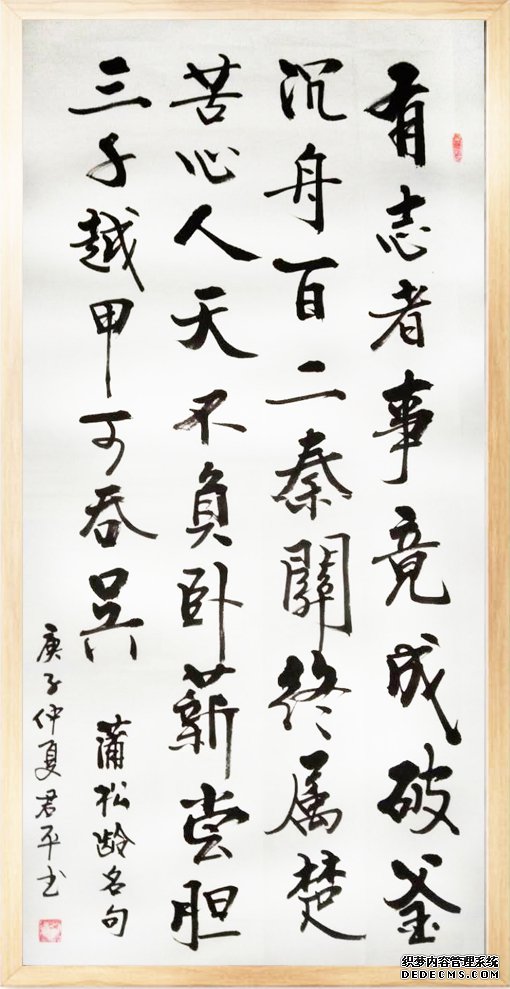 有志者事竟成破釜
沉舟百二秦關终属楚
苦心人天不負卧薪尝胆
三千越甲可吞吴
蒲松龄名句
庚子仲夏君平书
织梦内容管理系统
DEDECMS.COM